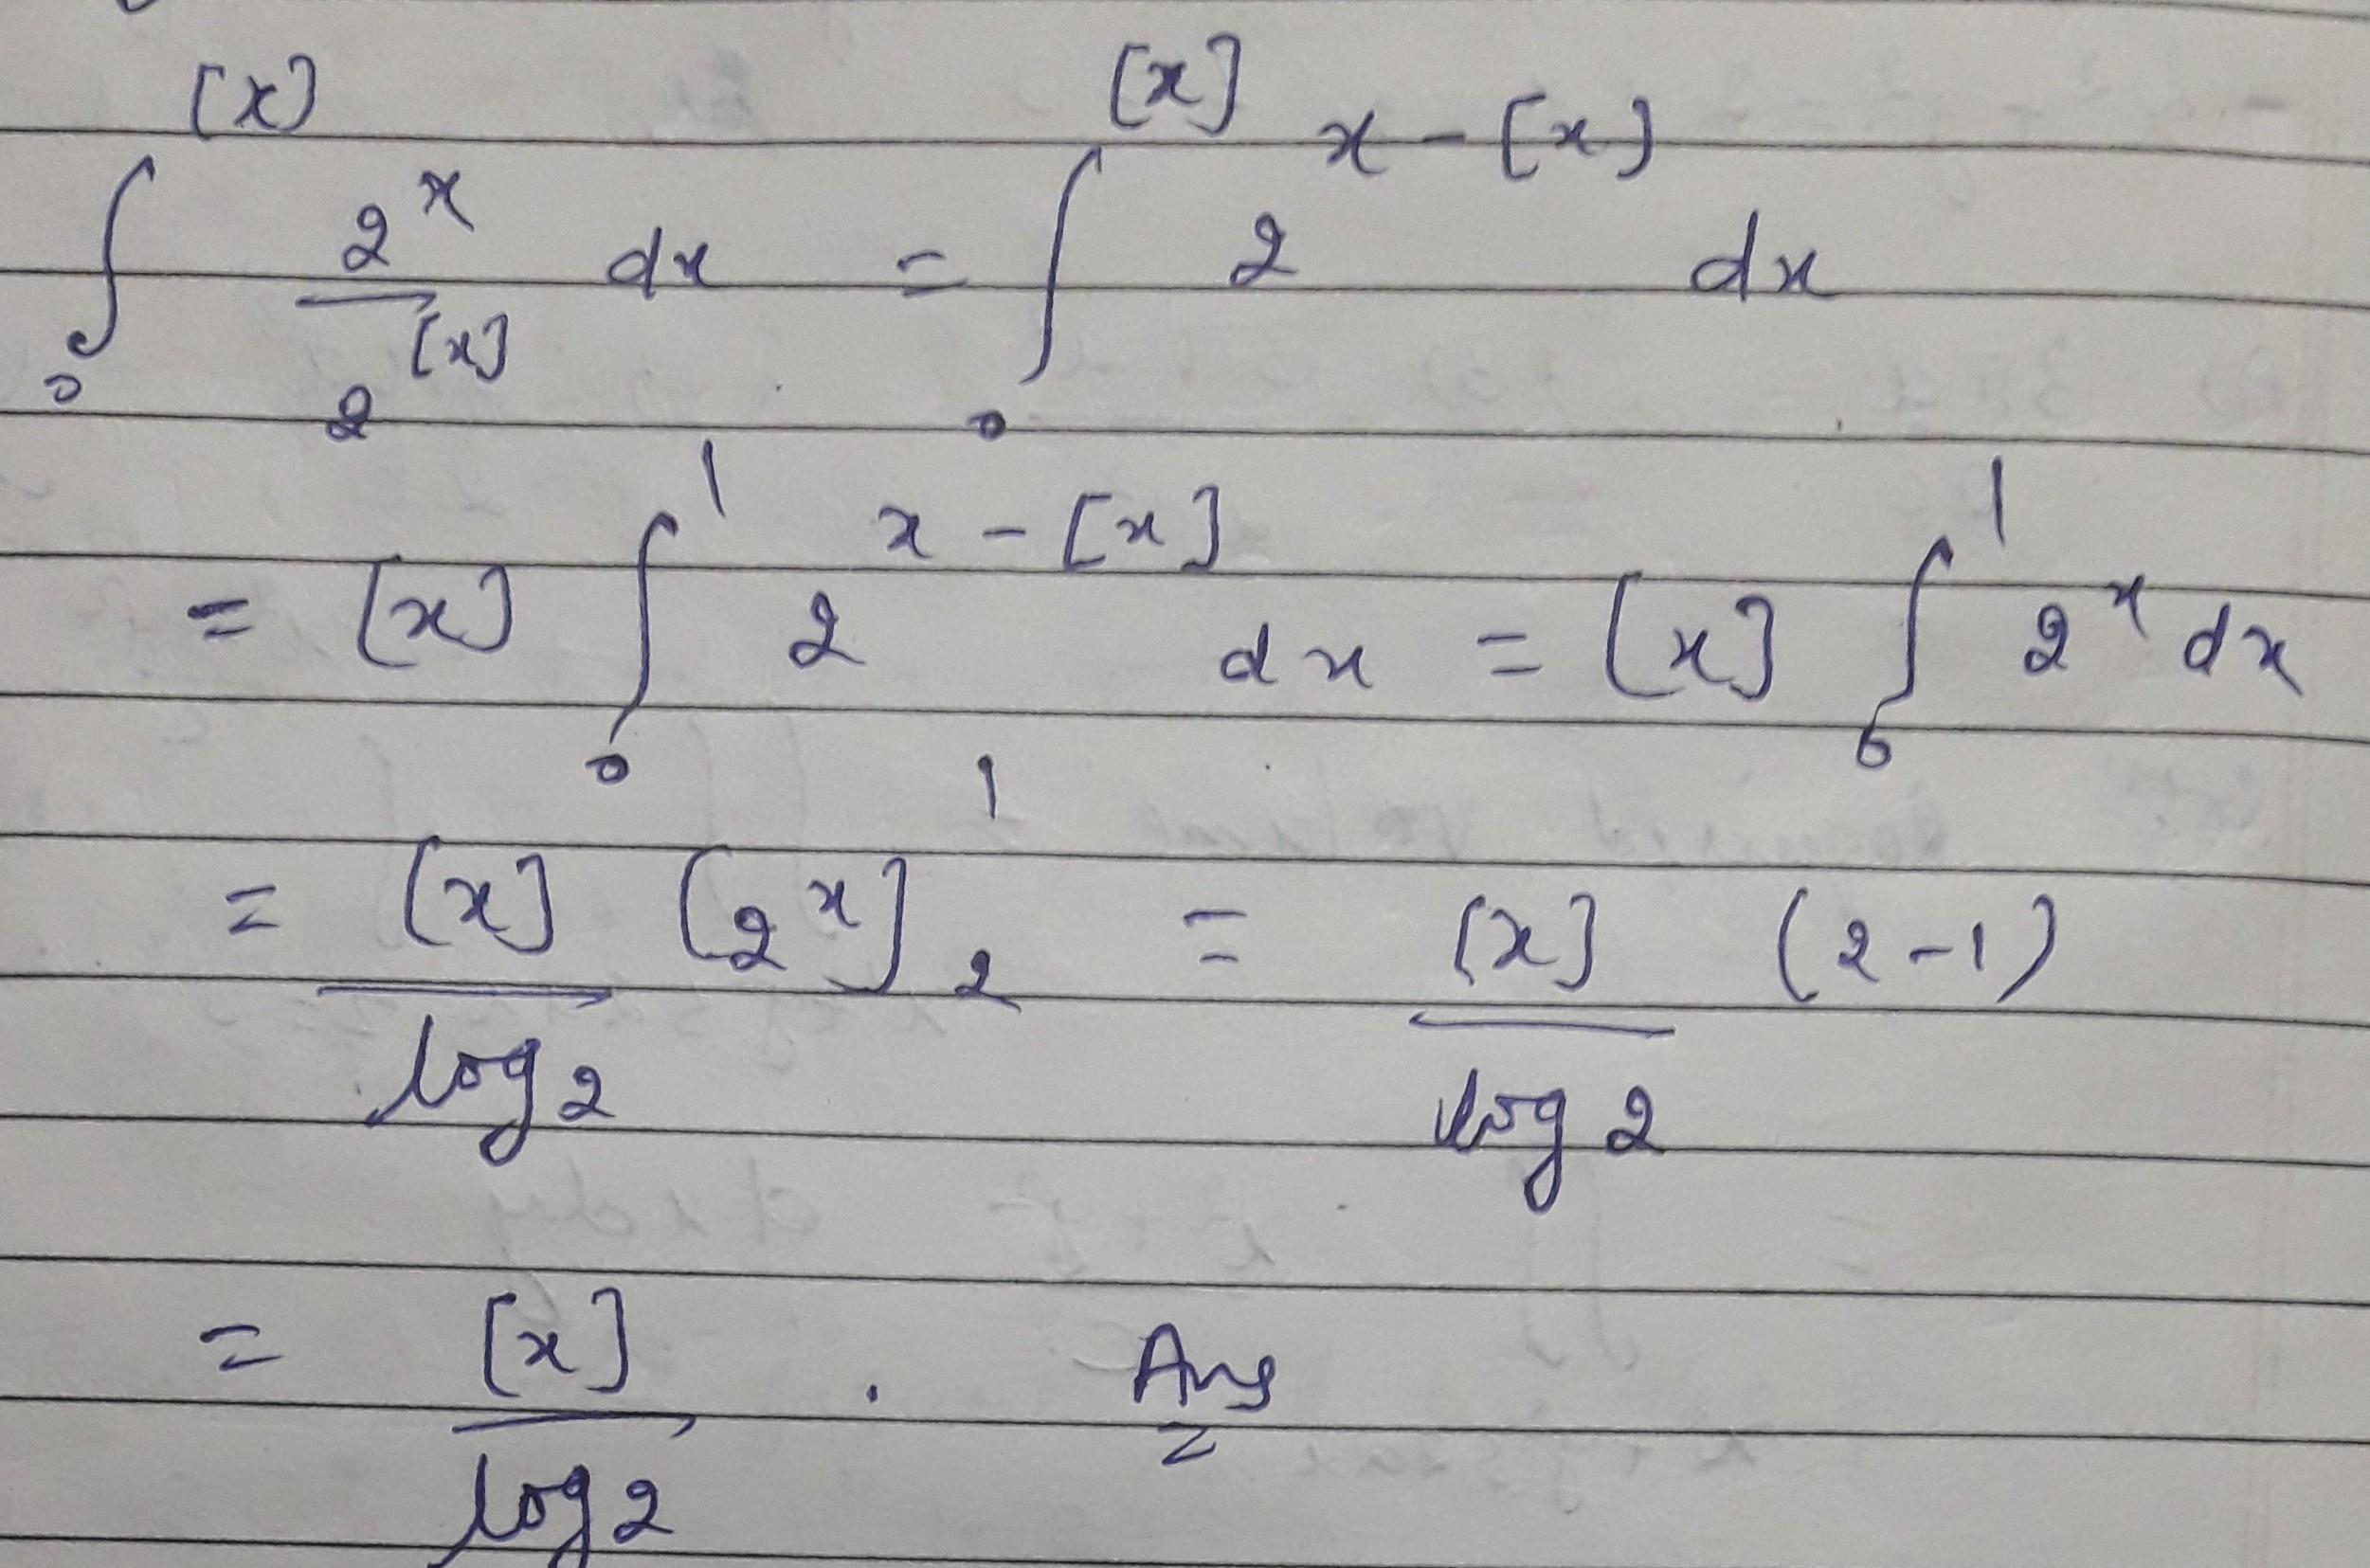 ∫₀^[x] 2^x / 2^[x] dx = ∫₀^[x] 2^(x-[x]) dx
= [x] ∫₀^1 2^(x-[x]) dx = [x] ∫₀^1 2^x dx
= [x]/log 2 [2^x]₂^1 = [x]/log 2 (2-1)
= [x]/log 2 . Ans